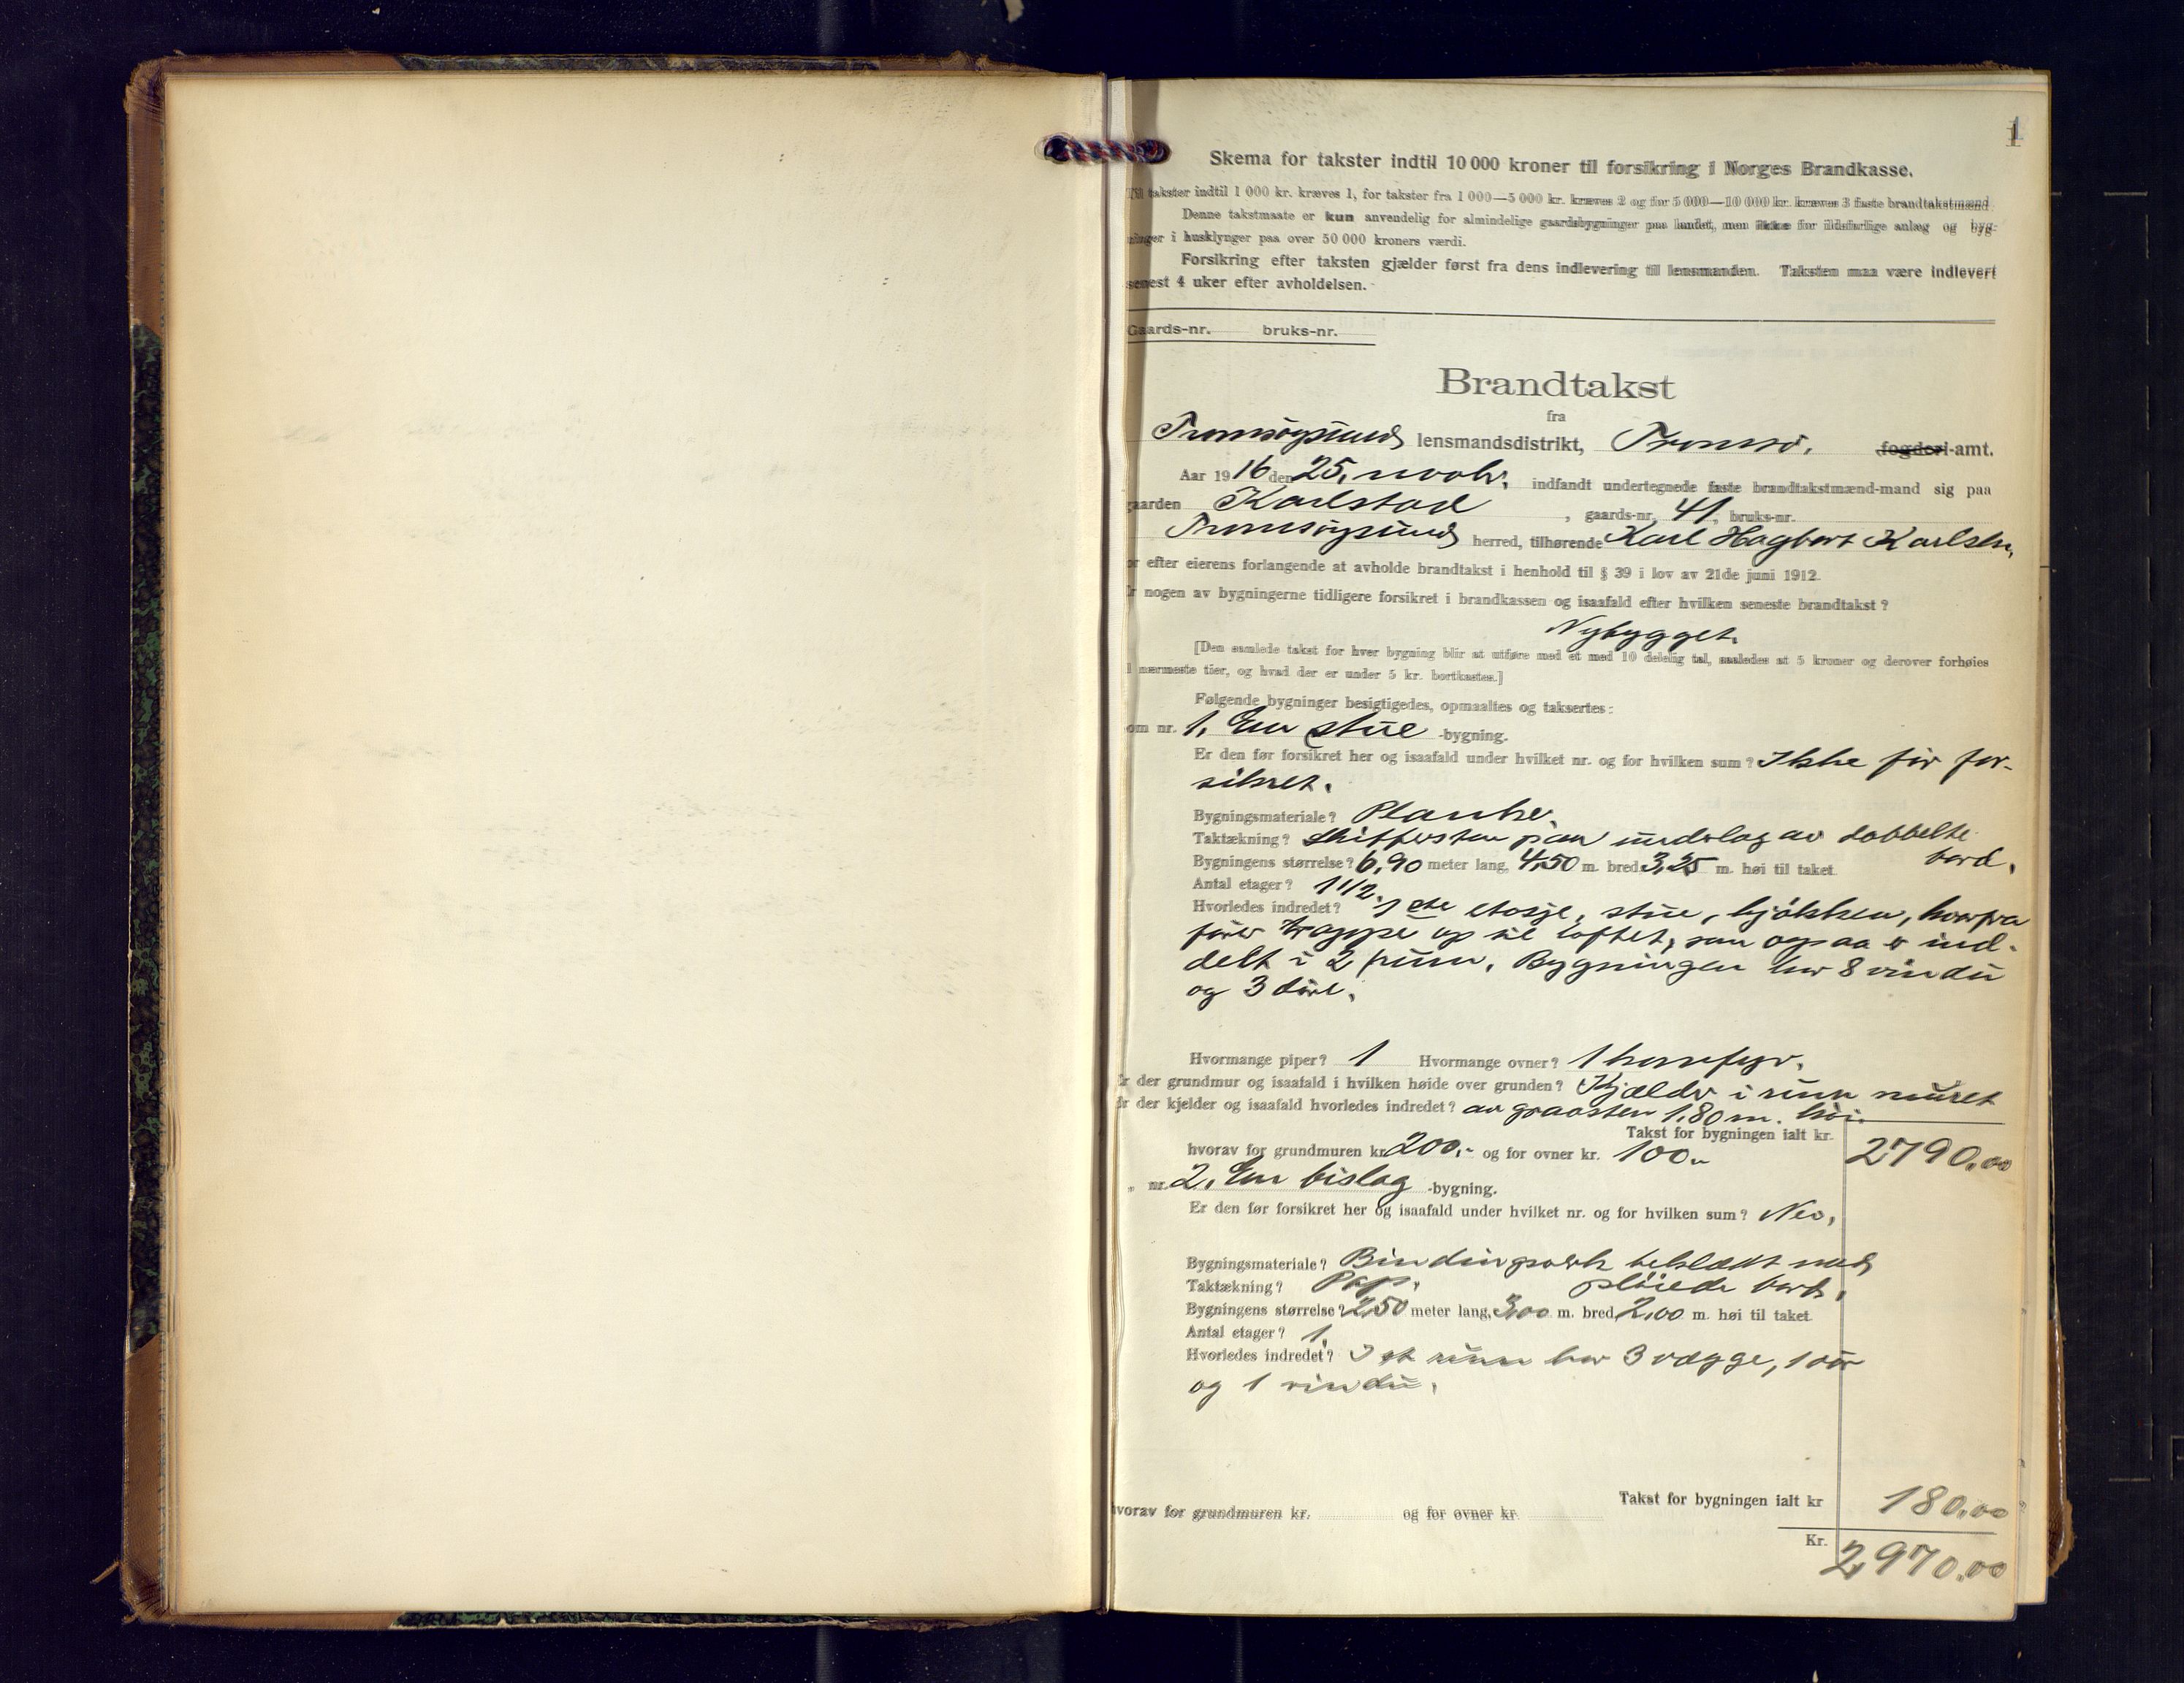 1
Skema for takster indtil 10 000 kroner til forsikring i Norges Brandkasse.
Til takster indtil 1 000 kr. kræves 1, for takster fra 1 000—5 000 kr. kræves 2 og for 5 000—10 000 kr. kræves 3 faste brandtakstmænd.
Denne takstmaate er kun anvendelig for almindelige gaardsbygninger paa landet, men ikke for ildsfarlige anlæg og byg-
ninger i husklynger paa over 50 000 kroners værdi.
Forsikring efter taksten gjælder først fra dens indlevering til lensmanden. Taksten maa være indlevert
senest 4 uker efter avholdelsen.
Gaards-nr. bruks-nr.
Brandtakst
fra
Tromsøysund lensmandsdistrikt, Tromsø. fogderi-amt.
Aar 1916 den 25. novbr. indfandt undertegnede faste brandtakstmænd-mand sig paa
gaarden Karlstad, gaards-nr. 41, bruks-nr.
Tromsøysund herred, tilhørende Karl Hagbart Karlsen,
for efter eierens forlangende at avholde brandtakst i henhold til § 39 i lov av 21de juni 1912.
Er nogen av bygningerne tidligere forsikret i brandkassen og isaafald efter hvilken seneste brandtakst?
Nybygget.
[Den samlede takst for hver bygning blir at utføre med et med 10 delelig tal, saaledes at 5 kroner og derover forhøies
til nærmeste tier, og hvad der er under 5 kr. bortkastes.]
Følgende bygninger besigtigedes, opmaaltes og taksertes:
som nr. 1. En stue -bygning.
Er den før forsikret her og isaafald under hvilket nr. og for hvilken sum? Ikke før for-
sikret.
Bygningsmateriale? Planke
Taktækning? Skiffersten paa underlag av dobbelte
bord.
Bygningens størrelse? 6,90 meter lang, 4,50 m. bred 3,25 m. høi til taket.
Antal etager? 1 1/2.
Hvorledes indredet? 1ste etasje, stue, kjøkken, hvorfra
fører trappe op til loftet, som ogsaa er ind-
delt i 2 rum. Bygningen har 8 vindu
og 3 døre.
Hvormange piper? 1 Hvormange ovner? 1 komfyr.
Er der grundmur og isaafald i hvilken høide over grunden? Kjælder i rum muret
Er der kjelder og isaafald hvorledes indredet? av graasten 1,80 m. høi.
Takst for bygningen ialt kr.
hvorav for grundmuren kr. 200,- og for ovner kr. 100.- 2790,00
„ nr. 2. En bislag -bygning.
Er den før forsikret her og isaafald under hvilket nr. og for hvilken sum? Nei,
Bygningsmateriale? Bindingsverk beklædt med
Taktækning? Pap. pløiede bord.
Bygningens størrelse? 2,50 meter lang, 3,00 m. bred, 2,00 m. høi til taket.
Antal etager? 1.
Hvorledes indredet? I et rum har 3 vægge, 1 dør
og 1 vindu.
Takst for bygningen ialt kr 180,00
hvorav for grundmuren kr. og for ovner kr.
Kr. 2,970,00